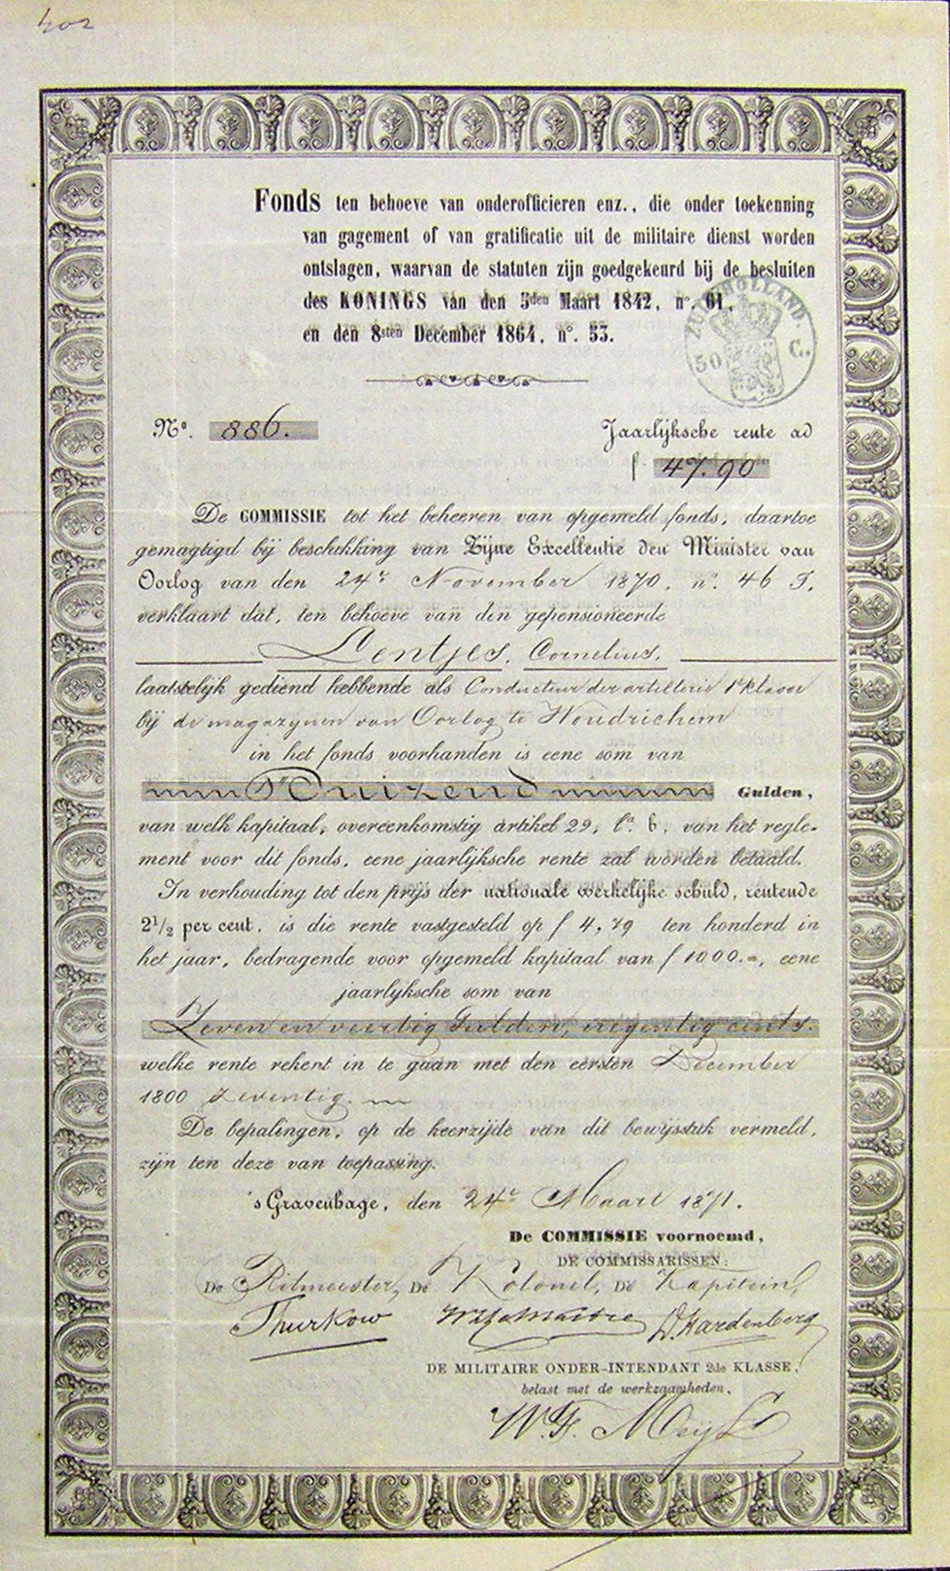 402
Fonds ten behoeve van onderofficieren enz., die onder toekenning
van gagement of van gratificatie uit de militaire dienst worden
ontslagen, waarvan de statuten zijn goedgekeurd bij de besluiten
des KONINGS van den 5den Maart 1842, no. 61,
en den 8sten December 1864, no. 53.
ZUID HOLLAND.
50 C.
No. 886.
Jaarlijksche rente ad
f. 47.90
De COMMISSIE tot het beheeren van opgemeld fonds, daartoe
gemagtigd bij beschikking van Zijne Excellentie den Minister van
Oorlog van den 24n November 1870, no. 46 J,
verklaart dat, ten behoeve van den gepensioneerde
Lentjes, Cornelius,
laatstelijk gediend hebbende als Conducteur der artillerie 1e klasse
bij de magazijnen van Oorlog te Woudrichem
in het fonds voorhanden is eene som van
Duizend Gulden,
van welk kapitaal, overeenkomstig artikel 29, la. b, van het regle-
ment voor dit fonds, eene jaarlijksche rente zal worden betaald.
In verhouding tot den prijs der nationale werkelijke schuld, rentende
2 1/2 per cent, is die rente vastgesteld op f 4,79 ten honderd in
het jaar, bedragende voor opgemeld kapitaal van f 1000.=, eene
jaarlijksche som van
Zeven en veertig Gulden, negentig cents.
welke rente rekent in te gaan met den eersten December
1800 zeventig.
De bepalingen, op de keerzijde van dit bewijsstuk vermeld,
zijn ten deze van toepassing.
's Gravenhage, den 24n Maart 1871.
De COMMISSIE voornoemd,
DE COMMISSARISSEN:
De Ritmeester, De Kolonel, De Kapitein,
Thurkow D. Hardenberg
DE MILITAIRE ONDER-INTENDANT 2de KLASSE,
belast met de werkzaamheden,
W. F.